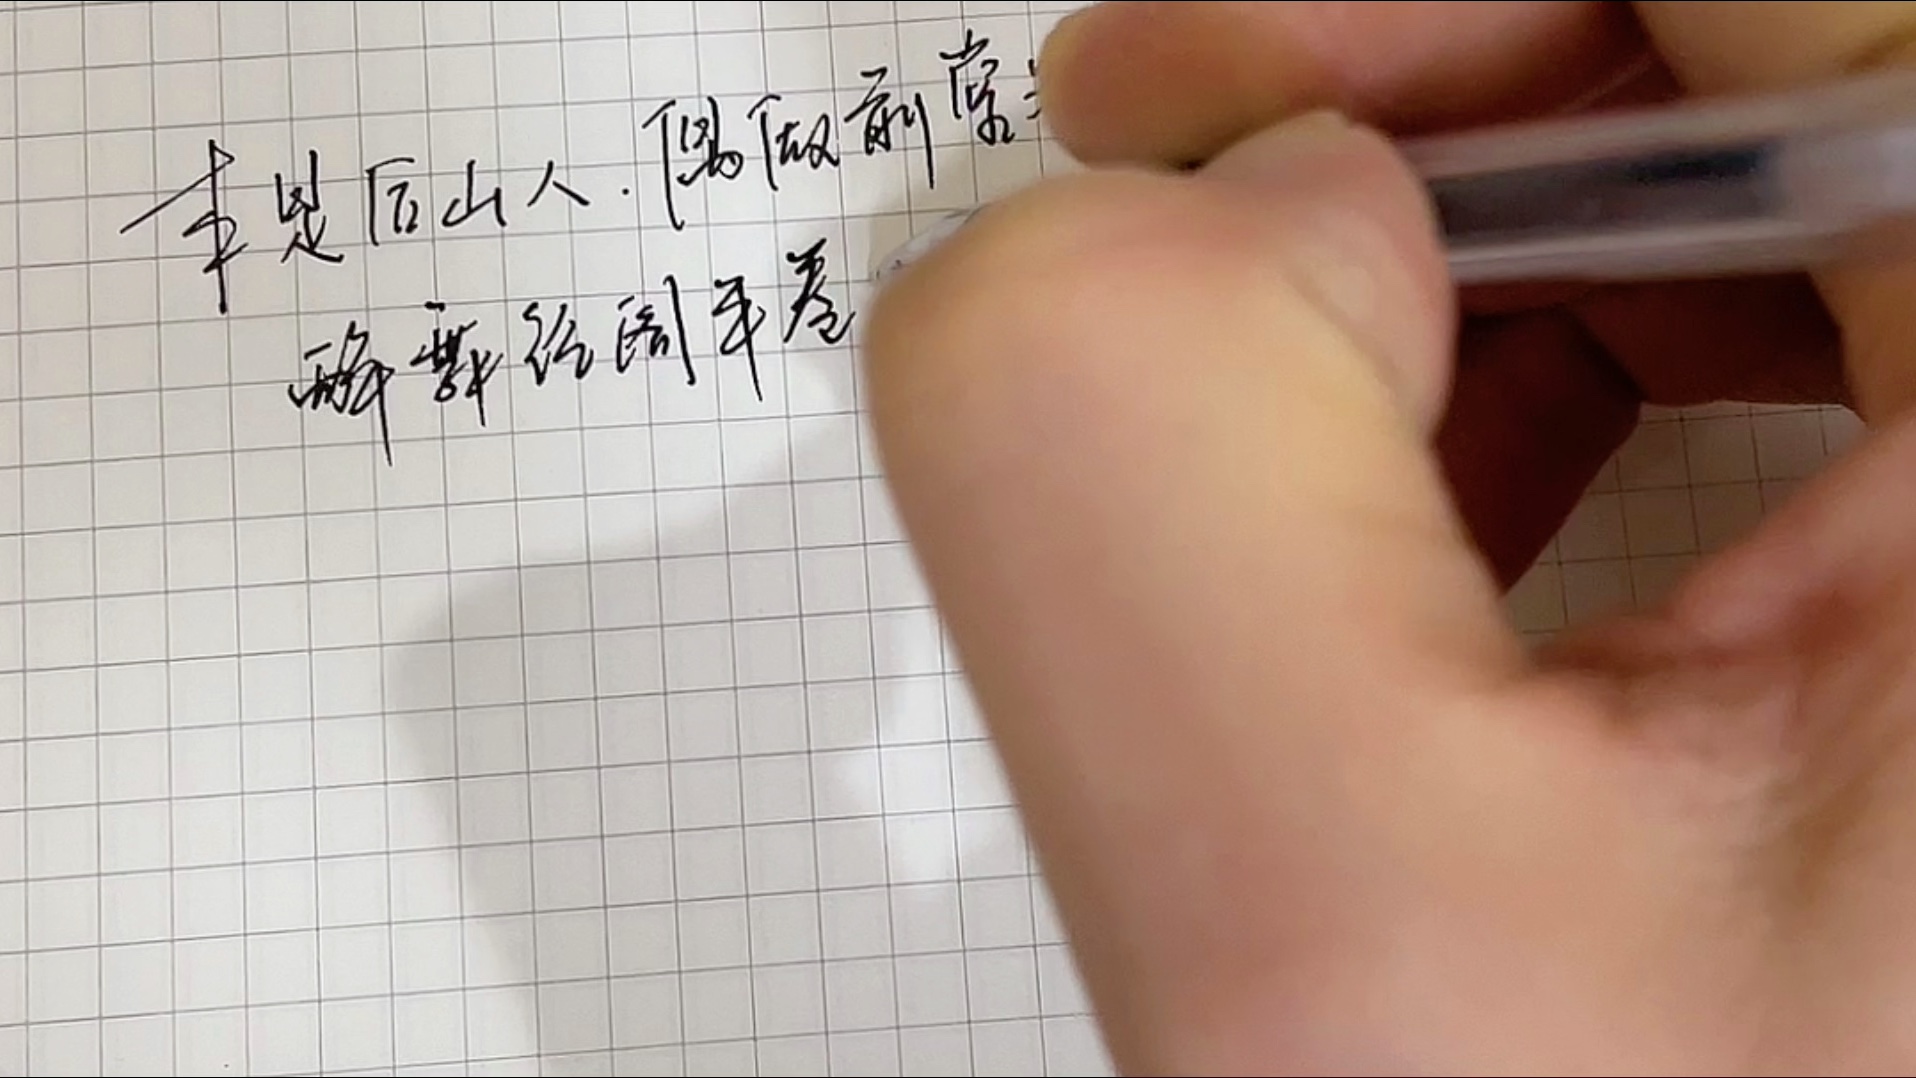 本是后山人.偶做前堂
醉舞经阁半卷